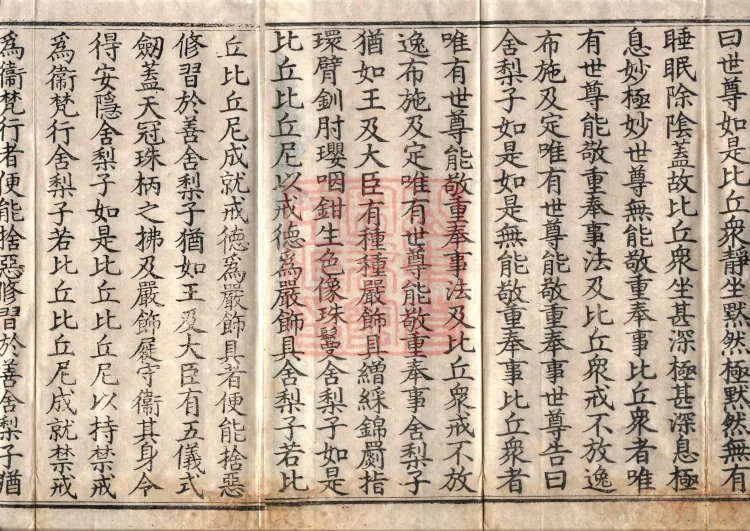 曰世尊如是比丘衆靜坐默然極默然無有
睡眠除陰蓋故比丘衆坐甚深極甚深息極
息妙極妙世尊無能敬重奉事比丘衆者唯
有世尊能敬重奉事法及比丘衆戒不放逸
布施及定唯有世尊能敬重奉事世尊告曰
舍梨子如是如是無能敬重奉事比丘衆者
唯有世尊能敬重奉事法及比丘衆戒不放
逸布施及定唯有世尊能敬重奉事舍梨子
猶如王及大臣有種種嚴飾具繒綵錦罽指
環臂釧肘瓔咽鉗生色像珠鬘舍梨子如是
比丘比丘尼以戒德爲嚴飾具舍梨子若比
丘比丘尼成就戒德爲嚴飾具者便能捨惡
修習於善舍梨子猶如王及大臣有五儀式
劒蓋天冠珠柄之拂及嚴飾屣守衞其身令
得安隱舍梨子如是比丘比丘尼以持禁戒
爲衞梵行舍梨子若比丘比丘尼成就禁戒
爲衞梵行者便能捨惡修習於善舍梨子猶